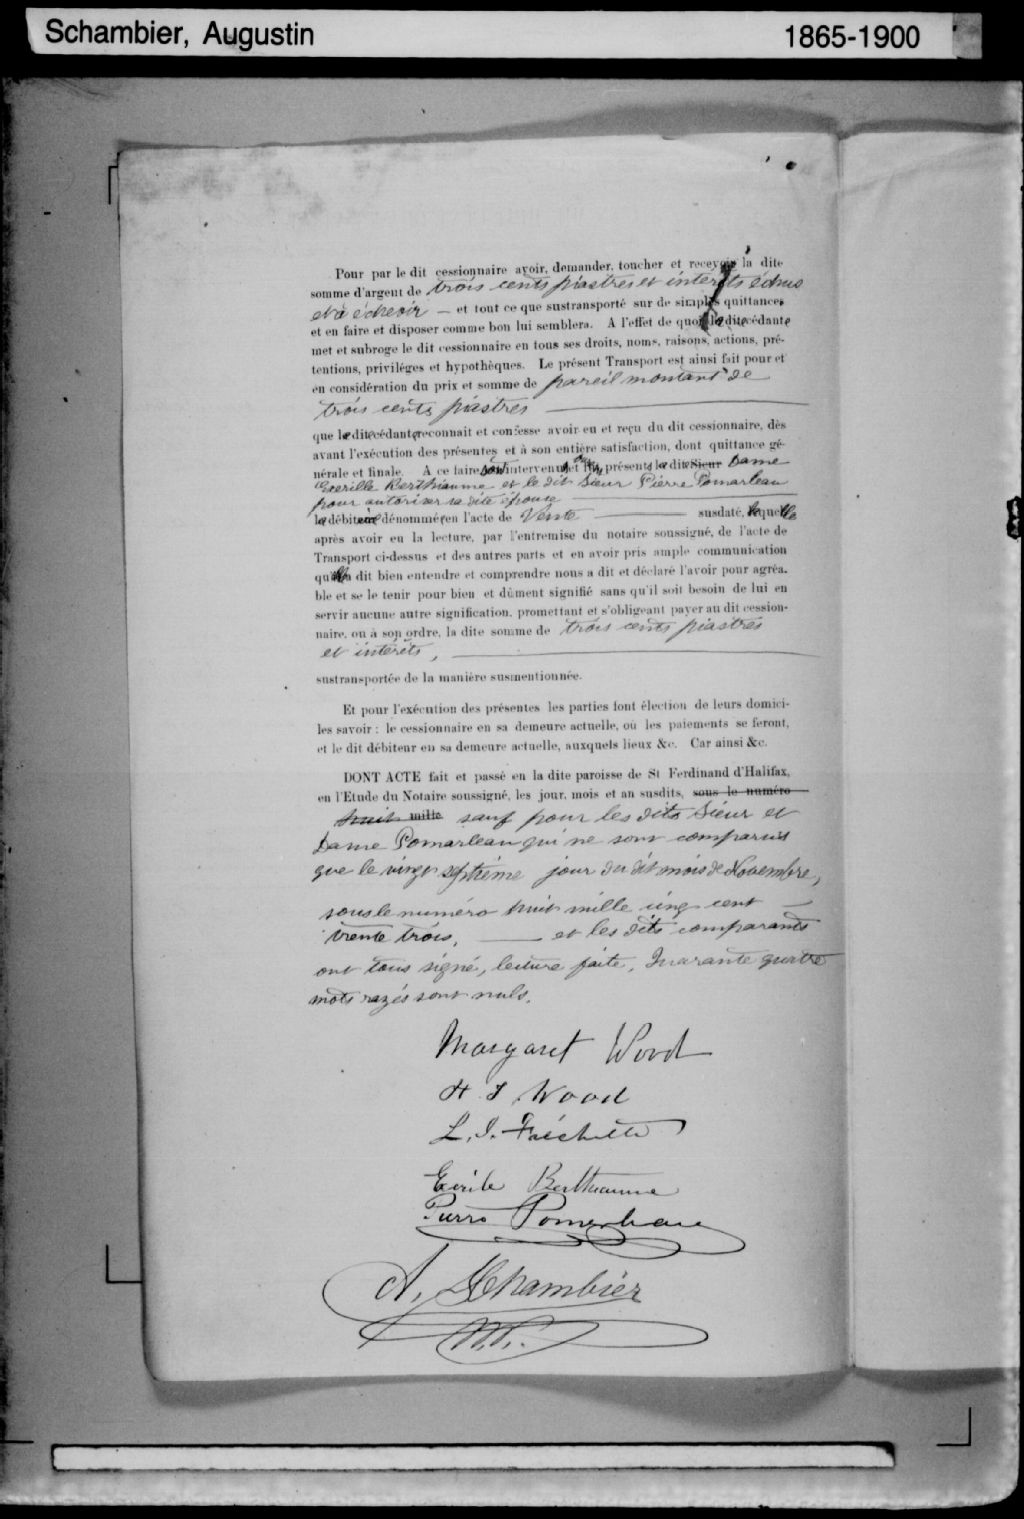 Schambier, Augustin 1865-1900
Pour par le dit cessionnaire avoir, demander, toucher et recevoir la dite
somme d'argent de trois cents piastres et intérêts échus
et à échevir — et tout ce que sustransporté sur de simples quittances
et en faire et disposer comme bon lui semblera. A l'effet de quoi la dite cédante
met et subroge le dit cessionnaire en tous ses droits, noms, raisons, actions, pré-
tentions, priviléges et hypothèques. Le présent Transport est ainsi fait pour et
en considération du prix et somme de pareil montant de
trois cents piastres
que la dite cédante reconnait et confesse avoir eu et reçu du dit cessionnaire, dès
avant l'exécution des présentes et à son entière satisfaction, dont quittance gé-
nérale et finale. A ce faire sont intervenus et présents la dite Sieur Dame
Exerille Berthiaume et le dit Sieur Pierre Pomarleau
pour autoriser sa dite épouse
la débitrice dénommée en l'acte de Vente susdaté, laquelle
après avoir eu la lecture, par l'entremise du notaire soussigné, de l'acte de
Transport ci-dessus et des autres parts et en avoir pris ample communication
qu'elle a dit bien entendre et comprendre nous a dit et déclaré l'avoir pour agréa.
ble et se le tenir pour bien et dûment signifié sans qu'il soit besoin de lui en
servir aucune autre signification, promettant et s'obligeant payer au dit cession-
naire, ou à son ordre, la dite somme de trois cents piastres
et intérêts,
sustransportée de la manière susmentionnée.
Et pour l'exécution des présentes les parties font élection de leurs domici-
les savoir : le cessionnaire en sa demeure actuelle, où les paiements se feront,
et le dit débiteur en sa demeure actuelle, auxquels lieux &c. Car ainsi &c.
DONT ACTE fait et passé en la dite paroisse de St Ferdinand d'Halifax,
en l'Etude du Notaire soussigné, les jour, mois et an susdits, sous le numéro
huit mille sauf pour les dits Sieur et
Dame Pomarleau qui ne sont comparus
que le vingt septième jour du dit mois de Novembre,
sous le numéro huit mille cinq cent —
trente trois, — et les dits comparants
ont tous signé, lecture faite, Quarante quatre
mots rayés sont nuls.
Margaret Wood
H I Wood
L. I. Fréchette
Exerile Berthiaume
Pierre Pomerleau
A. Schambier
N.P.